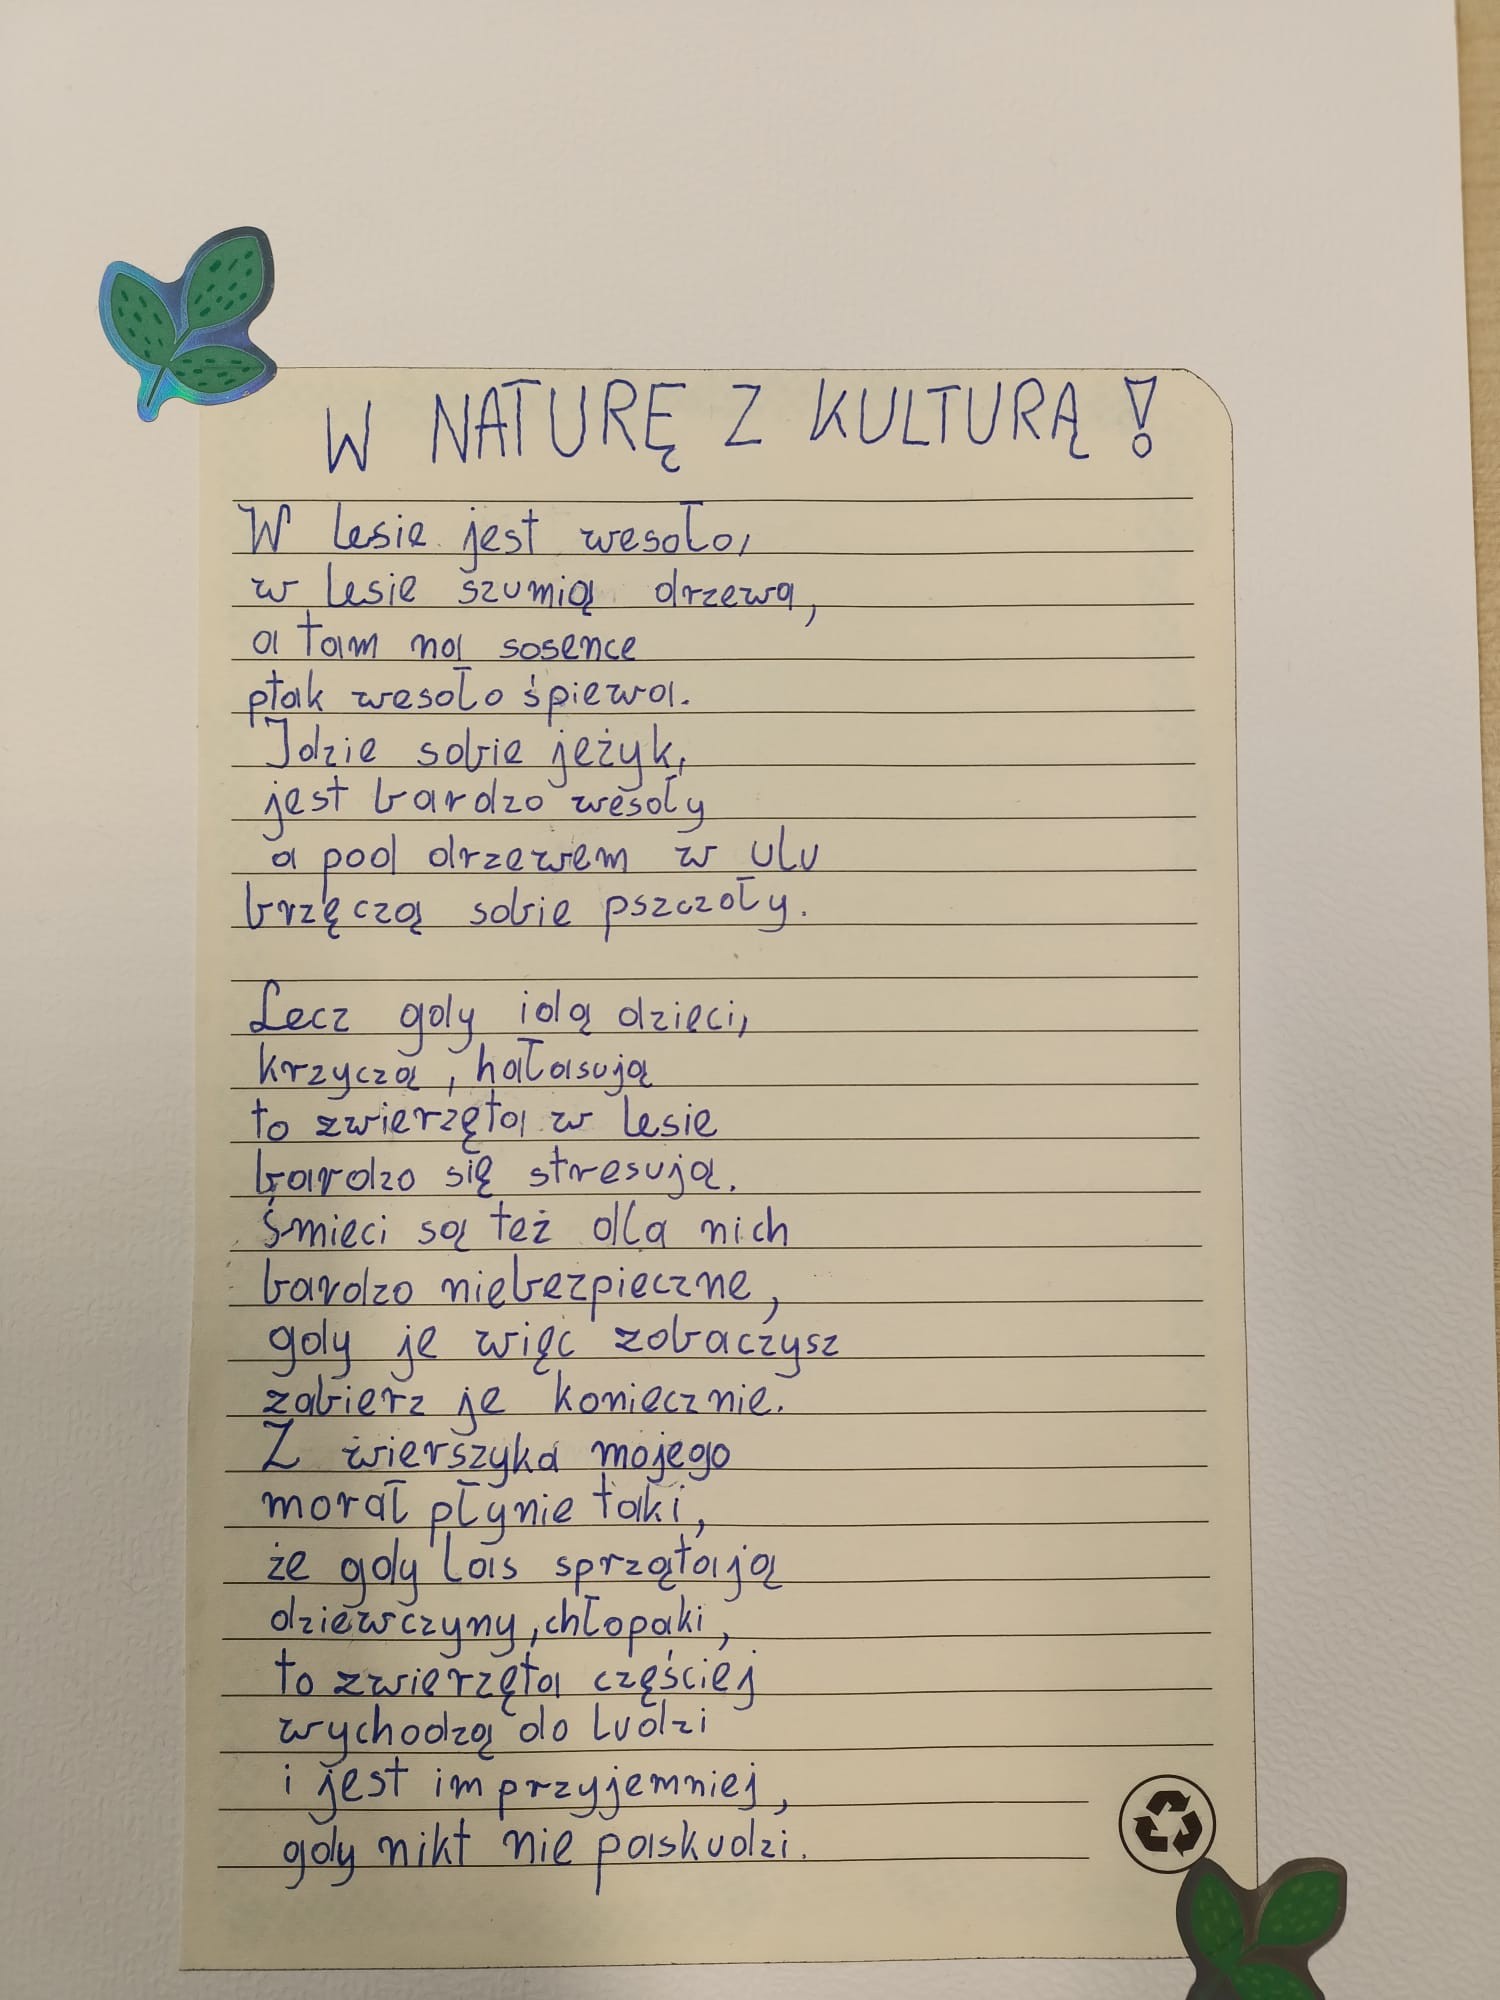 W NATURĘ Z KULTURĄ!
W lesie jest wesoło,
w lesie szumią drzewa,
a tam na sosence
ptak wesoło śpiewa.
Idzie sobie jeżyk,
jest bardzo wesoły
a pod drzewem w ulu
brzęczą sobie pszczoły.
Lecz gdy idą dzieci,
krzyczą, hałasują
to zwierzęta w lesie
bardzo się stresują.
Śmieci są też dla nich
bardzo niebezpieczne,
gdy je więc zobaczysz
zabierz je koniecznie.
Z wierszyka mojego
morał płynie taki,
że gdy las sprzątają
dziewczyny, chłopaki,
to zwierzęta częściej
wychodzą do ludzi
i jest im przyjemniej,
gdy nikt nie paskudzi.